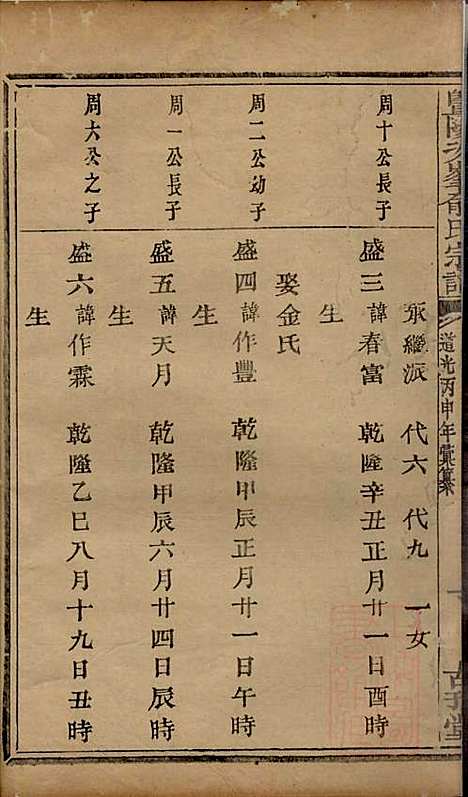 道光丙申年彙纂
永繼派 代六 代九 一女
周十公長子
盛三 諱春富 乾隆辛丑正月廿一日酉時
生
娶金氏
周二公幼子
盛四 諱作豐 乾隆甲辰正月廿一日午時
生
周一公長子
盛五 諱天月 乾隆甲辰六月廿四日辰時
生
周六公之子
盛六 諱作霖 乾隆乙巳八月十九日丑時
生